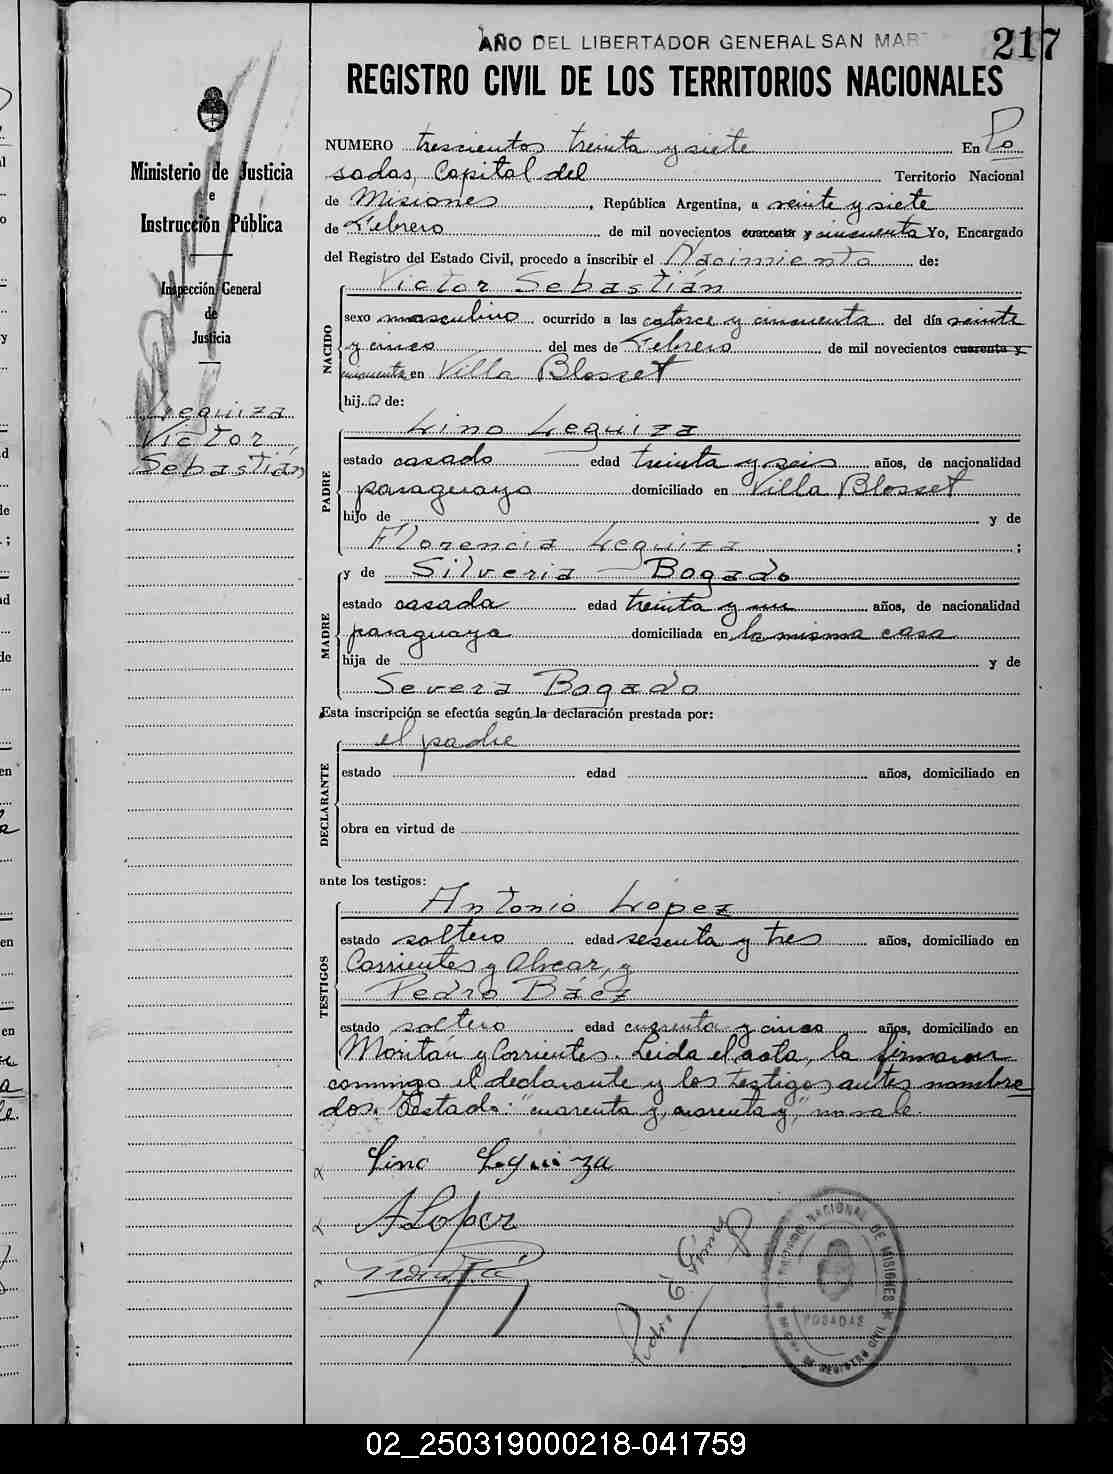 AÑO DEL LIBERTADOR GENERAL SAN MAR
217
REGISTRO CIVIL DE LOS TERRITORIOS NACIONALES
Ministerio de Justicia
e
Instrucción Pública
Inspección General
de
Justicia
Leguiza
Victor
Sebastián
NUMERO trescientos treinta y siete En Po
sadas, Capital del Territorio Nacional
de Misiones, República Argentina, a veinte y siete
de Febrero de mil novecientos cuarenta y cincuenta Yo, Encargado
del Registro del Estado Civil, procedo a inscribir el Nacimiento de:
NACIDO
Victor Sebastián
sexo masculino ocurrido a las catorce y cincuenta del día veinte
y cinco del mes de Febrero de mil novecientos cuarenta y
cincuenta en Villa Blosset
hijo de:
PADRE
Lino Leguiza
estado casado edad treinta y seis años, de nacionalidad
paraguaya domiciliado en Villa Blosset
hijo de y de
Florencia Leguiza ;
MADRE
y de Silveria Bogado
estado casada edad treinta y un años, de nacionalidad
paraguaya domiciliada en la misma casa
hija de y de
Severa Bogado
Esta inscripción se efectúa según la declaración prestada por:
DECLARANTE
el padre
estado edad años, domiciliado en
obra en virtud de
ante los testigos:
TESTIGOS
Antonio López
estado soltero edad sesenta y tres años, domiciliado en
Corrientes y Alvear, y
Pedro Báez
estado soltero edad cuarenta y cinco años, domiciliado en
Moritán y Corrientes. Leida el acta, la firmaron
conmigo el declarante y los testigos antes nombra
dos. Testado: "cuarenta y, cuarenta y," no vale.
Lino Leguiza
A Lopez
Pedro G. Gimez
NACIONAL DE MISIONES
POSADAS
02_250319000218-041759